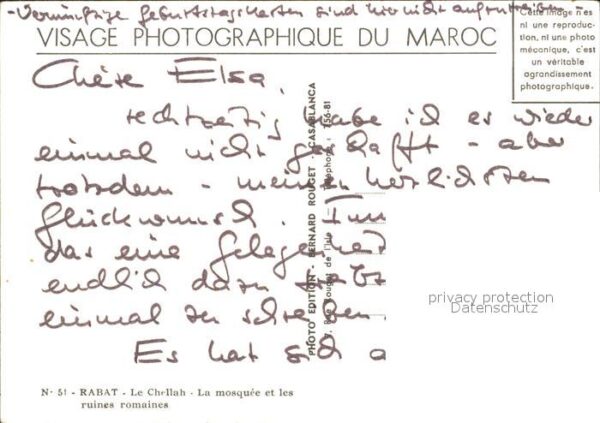 - Vernünftige Geburtstagskarten sind hier nicht aufzutreiben -
VISAGE PHOTOGRAPHIQUE DU MAROC
Cette image n'es
ni une reproduc-
tion, ni une photo
mécanique, c'est
un véritable
agrandissement
photographique.
Chère Elsa,
rechtzeitig habe ich es wieder
einmal nicht geschafft - aber
trotzdem - meinen herzlichsten
Glückwunsch.
das eine Gelegenheit
endlich dazu
einmal zu schreiben.
Es hat sich a
PHOTO ÉDITION - BERNARD ROUGET - CASABLANCA
7, Rue Rouget de l'Isle - Téléphone : 756-81
privacy protection
Datenschutz
N° 51 - RABAT - Le Chellah - La mosquée et les
ruines romaines